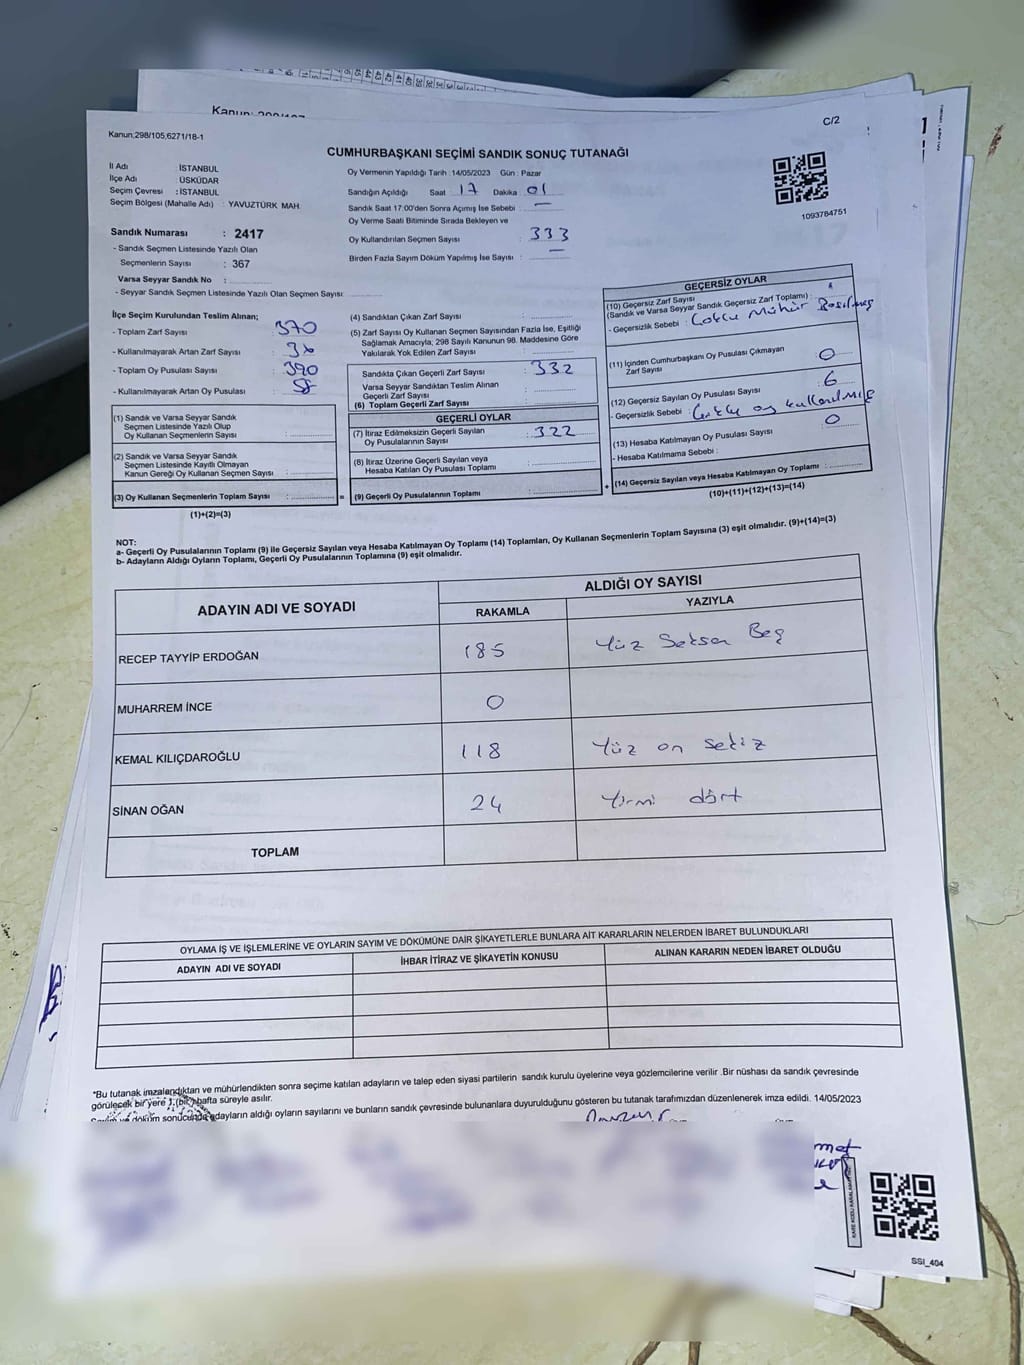 Kanun;298/105,6271/18-1
C/2
CUMHURBAŞKANI SEÇİMİ SANDIK SONUÇ TUTANAĞI
İl Adı : İSTANBUL
İlçe Adı : ÜSKÜDAR
Seçim Çevresi : İSTANBUL
Seçim Bölgesi (Mahalle Adı) : YAVUZTÜRK MAH.
Sandık Numarası : 2417
- Sandık Seçmen Listesinde Yazılı Olan
Seçmenlerin Sayısı : 367
Varsa Seyyar Sandık No :
- Seyyar Sandık Seçmen Listesinde Yazılı Olan Seçmen Sayısı:
Oy Vermenin Yapıldığı Tarih :14/05/2023 Gün : Pazar
Sandığın Açıldığı Saat 17 Dakika 01
Sandık Saat 17:00'den Sonra Açımış İse Sebebi : —
Oy Verme Saati Bitiminde Sırada Bekleyen ve
Oy Kullandırılan Seçmen Sayısı : 333
Birden Fazla Sayım Döküm Yapılmış İse Sayısı : —
1093784751
İlçe Seçim Kurulundan Teslim Alınan;
- Toplam Zarf Sayısı : 370
- Kullanılmayarak Artan Zarf Sayısı :
- Toplam Oy Pusulası Sayısı : 390
- Kullanılmayarak Artan Oy Pusulası : 58
(1) Sandık ve Varsa Seyyar Sandık
Seçmen Listesinde Yazılı Olup
Oy Kullanan Seçmenlerin Sayısı :
(2) Sandık ve Varsa Seyyar Sandık
Seçmen Listesinde Kayıtlı Olmayan
Kanun Gereği Oy Kullanan Seçmen Sayısı :
(3) Oy Kullanan Seçmenlerin Toplam Sayısı : =
(1)+(2)=(3)
(4) Sandıktan Çıkan Zarf Sayısı :
(5) Zarf Sayısı Oy Kullanan Seçmen Sayısından Fazla İse, Eşitliği
Sağlamak Amacıyla; 298 Sayılı Kanunun 98. Maddesine Göre
Yakılarak Yok Edilen Zarf Sayısı :
Sandıkta Çıkan Geçerli Zarf Sayısı : 332
Varsa Seyyar Sandıktan Teslim Alınan
Geçerli Zarf Sayısı :
(6) Toplam Geçerli Zarf Sayısı :
GEÇERLİ OYLAR
(7) İtiraz Edilmeksizin Geçerli Sayılan
Oy Pusulalarının Sayısı : 322
(8) İtiraz Üzerine Geçerli Sayılan veya
Hesaba Katılan Oy Pusulası Toplamı :
(9) Geçerli Oy Pusulalarının Toplamı : +
GEÇERSİZ OYLAR
(10) Geçersiz Zarf Sayısı
(Sandık ve Varsa Seyyar Sandık Geçersiz Zarf Toplamı) :
- Geçersizlik Sebebi : Çoklu Mühür Basılmış
(11) İçinden Cumhurbaşkanı Oy Pusulası Çıkmayan
Zarf Sayısı : 0
(12) Geçersiz Sayılan Oy Pusulası Sayısı : 6
- Geçersizlik Sebebi : Çoklu oy kullanılmış
(13) Hesaba Katılmayan Oy Pusulası Sayısı : 0
- Hesaba Katılmama Sebebi :
(14) Geçersiz Sayılan veya Hesaba Katılmayan Oy Toplamı :
(10)+(11)+(12)+(13)=(14)
NOT:
a- Geçerli Oy Pusulalarının Toplamı (9) ile Geçersiz Sayılan veya Hesaba Katılmayan Oy Toplamı (14) Toplamları, Oy Kullanan Seçmenlerin Toplam Sayısına (3) eşit olmalıdır. (9)+(14)=(3)
b- Adayların Aldığı Oyların Toplamı, Geçerli Oy Pusulalarının Toplamına (9) eşit olmalıdır.
ADAYIN ADI VE SOYADI
ALDIĞI OY SAYISI
RAKAMLA YAZIYLA
RECEP TAYYİP ERDOĞAN 185 Yüz Seksen Beş
MUHARREM İNCE 0
KEMAL KILIÇDAROĞLU 118 Yüz on sekiz
SİNAN OĞAN 24 Yirmi dört
TOPLAM
OYLAMA İŞ VE İŞLEMLERİNE VE OYLARIN SAYIM VE DÖKÜMÜNE DAİR ŞİKAYETLERLE BUNLARA AİT KARARLARIN NELERDEN İBARET BULUNDUKLARI
ADAYIN ADI VE SOYADI İHBAR İTİRAZ VE ŞİKAYETİN KONUSU ALINAN KARARIN NEDEN İBARET OLDUĞU
*Bu tutanak imzalandıktan ve mühürlendikten sonra seçime katılan adayların ve talep eden siyasi partilerin sandık kurulu üyelerine veya gözlemcilerine verilir .Bir nüshası da sandık çevresinde
görülecek bir yere 1.(bir) hafta süreyle asılır.
Sayım ve döküm sonucunda adayların aldığı oyların sayılarını ve bunların sandık çevresinde bulunanlara duyurulduğunu gösteren bu tutanak tarafımızdan düzenlenerek imza edildi. 14/05/2023
SSI_404